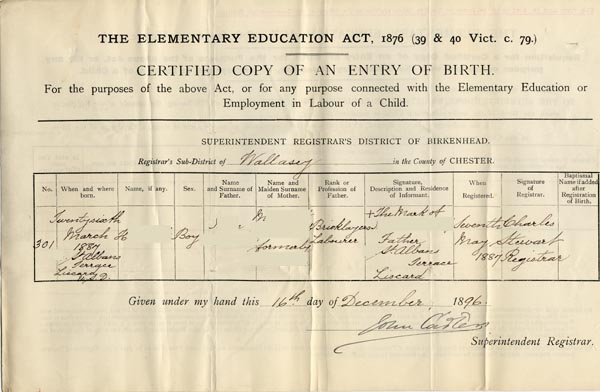 THE ELEMENTARY EDUCATION ACT, 1876 (39 & 40 Vict. c. 79.)
CERTIFIED COPY OF AN ENTRY OF BIRTH.
For the purposes of the above Act, or for any purpose connected with the Elementary Education or
Employment in Labour of a Child.
SUPERINTENDENT REGISTRAR'S DISTRICT OF BIRKENHEAD.
Registrar's Sub-District of Wallasey in the County of CHESTER.
No.
When and where born.
Name, if any.
Sex.
Name and Surname of Father.
Name and Maiden Surname of Mother.
Rank or Profession of Father.
Signature, Description and Residence of Informant.
When Registered.
Signature of Registrar.
Baptismal Name, if added after Registration of Birth.
301
Twentysixth
March
1887
St Albans
Terrace
Liscard
U.S.D.
H
Boy
M
formerly
Bricklayers
Labourer
+ The Mark of
Father
St Albans
Terrace
Liscard
Seventh
May
1887
Charles
Stewart
Registrar
Given under my hand this 16th day of December 1896
John
Superintendent Registrar.